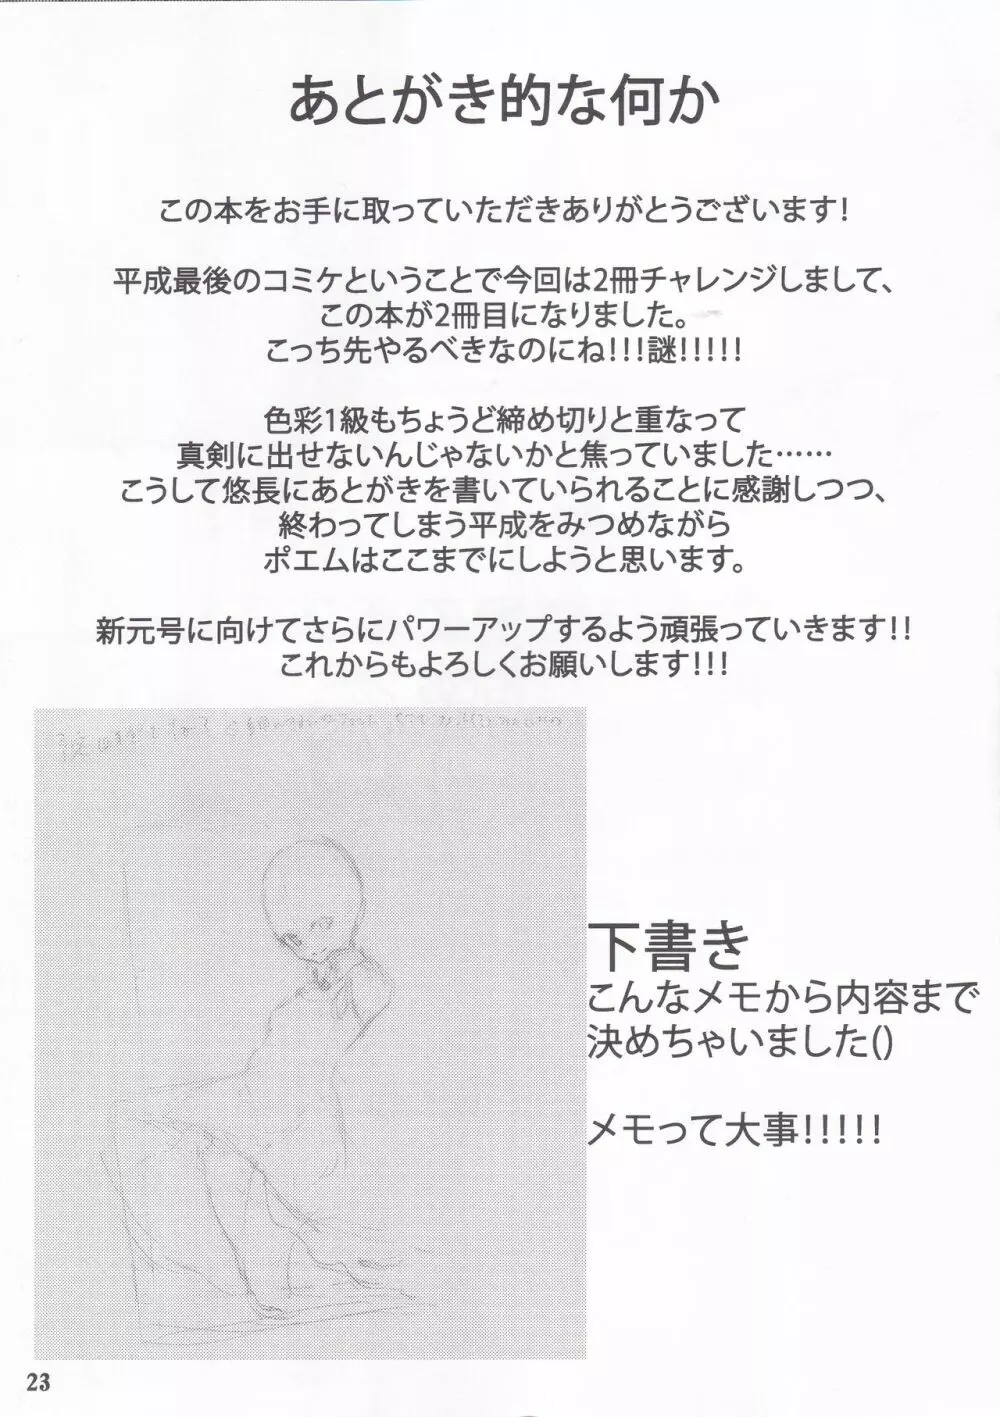 あとがき的な何か
この本をお手に取っていただきありがとうございます!
平成最後のコミケということで今回は2冊チャレンジしまして、
この本が2冊目になりました。
こっち先やるべきなのにね!!!謎!!!!!
色彩1級もちょうど締め切りと重なって
真剣に出せないんじゃないかと焦っていました……
こうして悠長にあとがきを書いていられることに感謝しつつ、
終わってしまう平成をみつめながら
ポエムはここまでにしようと思います。
新元号に向けてさらにパワーアップするよう頑張っていきます!!
これからもよろしくお願いします!!!
下書き
こんなメモから内容まで
決めちゃいました()
メモって大事!!!!!
23